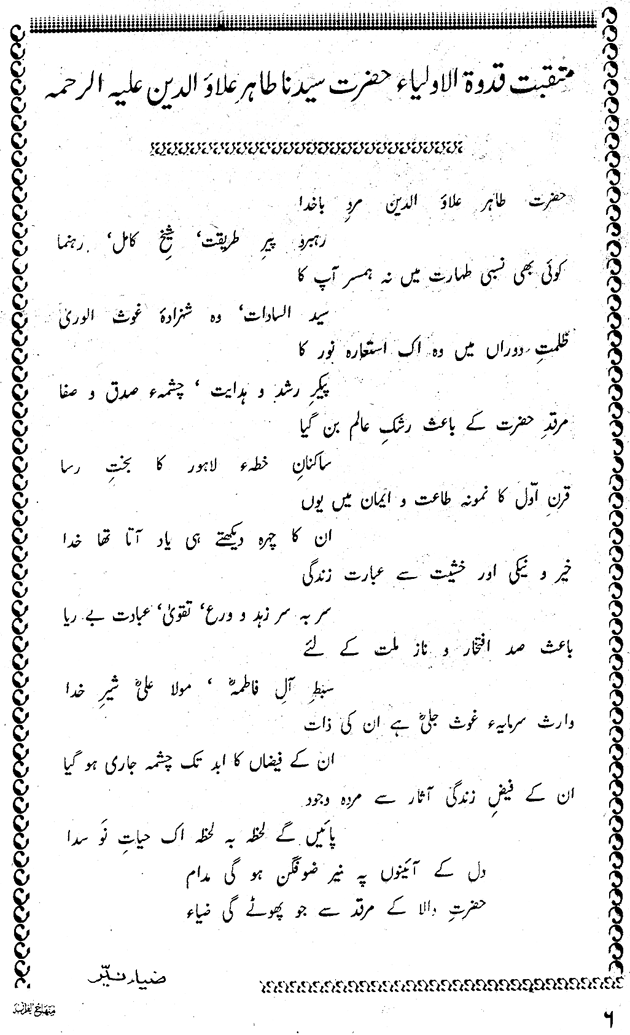 منقبت قدوۃ الاولیاء حضرت سیدنا طاہر علاؤ الدین علیہ الرحمہ
حضرت طاہر علاؤ الدین مردِ باخدا
رہبرو پیرِ طریقت، شیخِ کامل، رہنما
کوئی بھی نسبی طہارت میں نہ ہمسر آپ کا
سید السادات، وہ شہزادۂ غوث الوریٰ
ظلمتِ دوراں میں وہ اک استعارہ نور کا
پیکرِ رشد و ہدایت ، چشمہء صدق و صفا
مرقدِ حضرت کے باعث رشکِ عالم بن گیا
ساکنانِ خطہء لاہور کا بختِ رسا
قرنِ اوّل کا نمونہ طاعت و ایمان میں یوں
ان کا چہرہ دیکھتے ہی یاد آتا تھا خدا
خیر و نیکی اور خشیت سے عبارت زندگی
سر بہ سر زہد و ورع، تقویٰ، عبادت بے ریا
باعث صد افتخار و ناز ملت کے لئے
سبطِ آلِ فاطمہؓ ، مولا علیؓ شیرِ خدا
وارث سرمایہء غوث جلیؓ ہے ان کی ذات
ان کے فیضاں کا ابد تک چشمہ جاری ہو گیا
ان کے فیضِ زندگی آثار سے مردہ وجود
پائیں گے لحظہ بہ لحظہ اک حیاتِ نَو سدا
دل کے آئینوں پہ نیر ضوفگن ہو گی مدام
حضرتِ والا کے مرقد سے جو پھوٹے گی ضیاء
ضیاء نیّر
۶